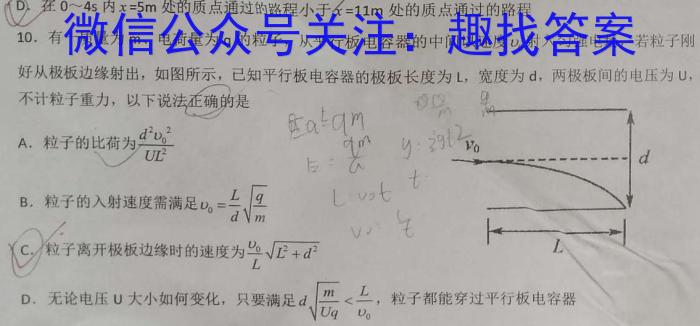 D. 在 0～4s 内 x=5m 处的质点通过的路程小于 x=11m 处的质点通过的路程
微信公众号关注：趣找答案
10. 有 质量为 m 电荷量为 q 的粒子，从平行板电容器的中间 速度 υ 射入 强电 若粒子刚
好从极板边缘射出，如图所示，已知平行板电容器的极板长度为 L，宽度为 d，两极板间的电压为 U，
不计粒子重力，以下说法正确的是
A. 粒子的比荷为 d²υ₀²/UL²
B. 粒子的入射速度需满足 υ₀ = L/d √(q/m)
C. 粒子离开极板边缘时的速度为 υ₀/L √(L²+d²)
D. 无论电压 U 大小如何变化，只要满足 d√(m/Uq) < L/υ₀，粒子都能穿过平行板电容器
υ₀
d
L